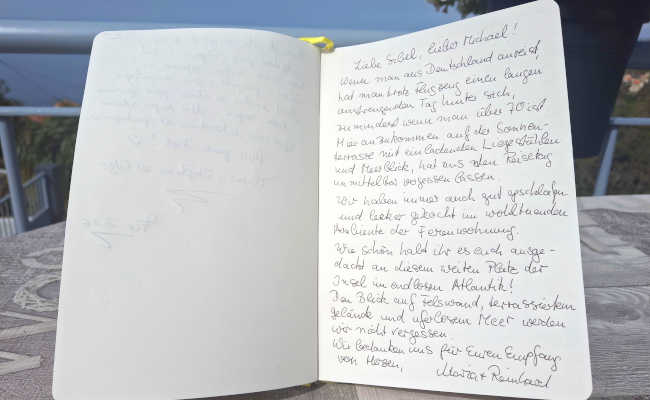 Liebe Sibel, lieber Michael!
Wenn man aus Deutschland anreist,
hat man trotz Flugzeug einen langen
anstrengenden Tag hinter sich,
zumindest wenn man über 70 ist.
Hier anzukommen auf der Sonnen-
terrasse mit einladenden Liegestühlen
und Meerblick, hat uns den Reisetag
unmittelbar vergessen lassen.
Wir haben immer auch gut geschlafen
und lecker gekocht im wohltuenden
Ambiente der Ferienwohnung.
Wie schön habt ihr es euch ausge-
dacht an diesem weiten Platz der
Insel im endlosen Atlantik!
Den Blick auf Felswand, terrassiertem
Gelände und uferlosem Meer werden
wir nicht vergessen.
Wir bedanken uns für Euren Empfang
von Herzen,
Maria + Reinhard